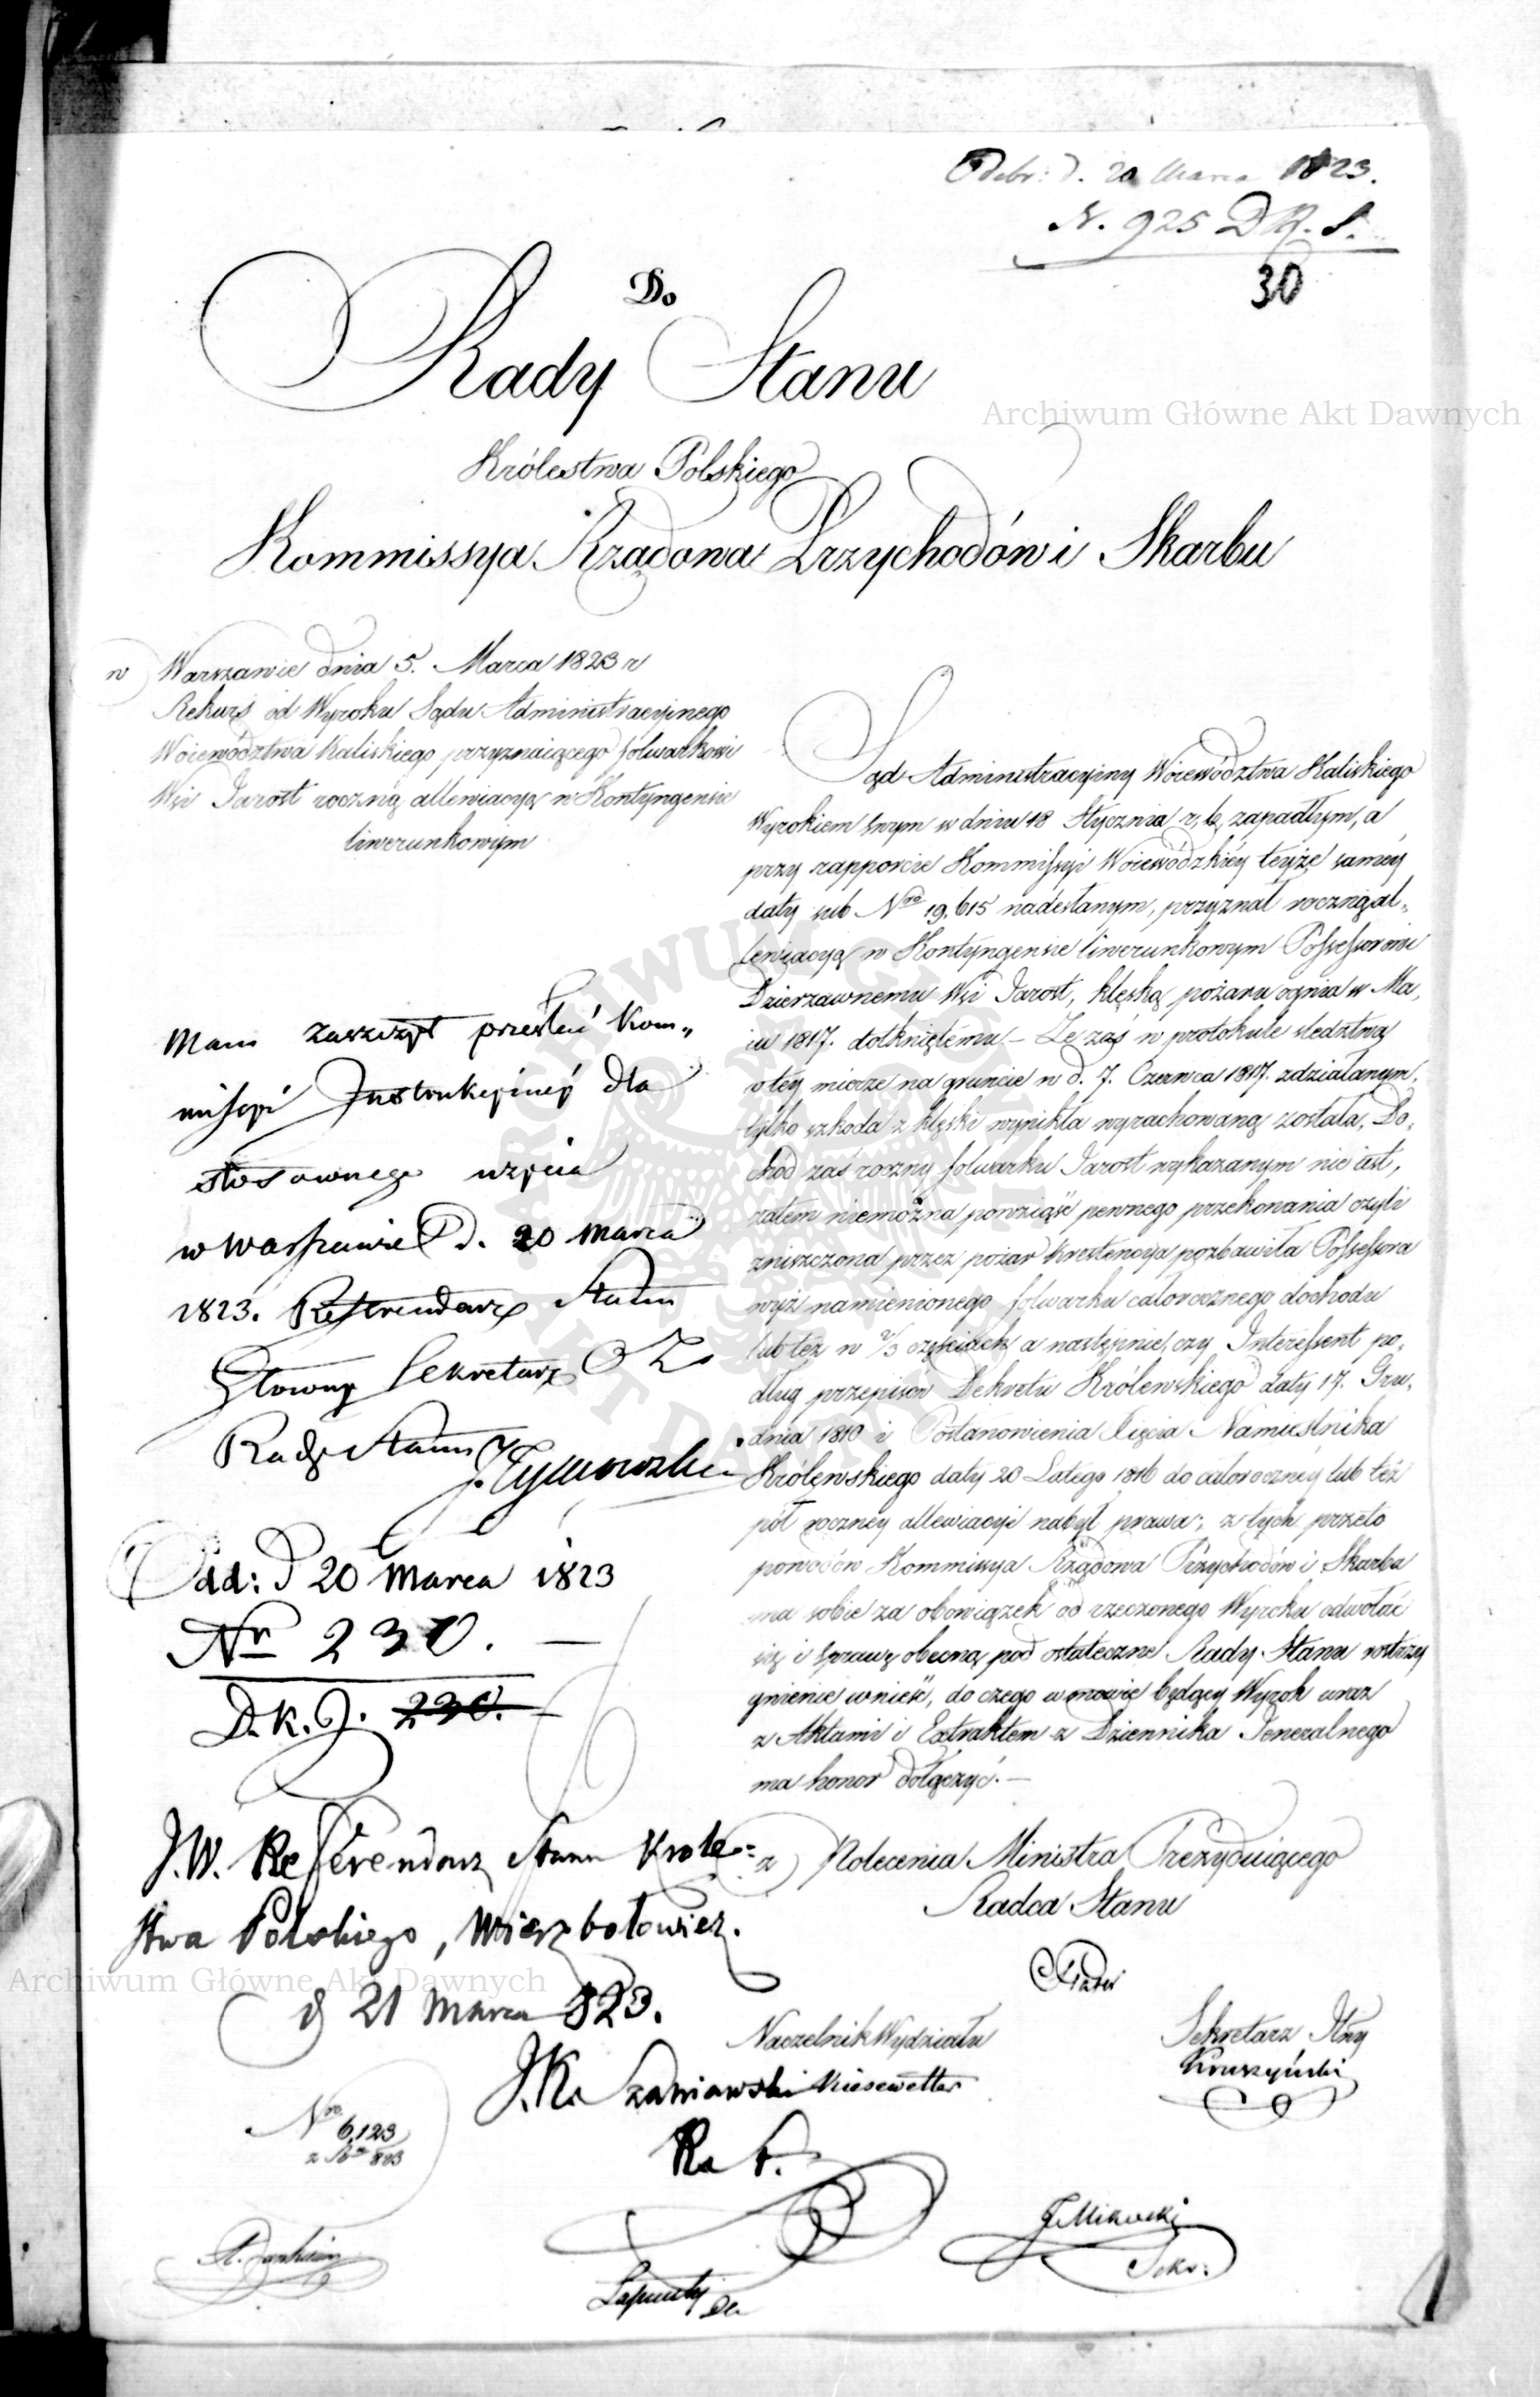 Odebr: d. 20 Marca 1823.
N. 925 D.R.S.
30
Do
Rady Stanu
Archiwum Główne Akt Dawnych
Królestwa Polskiego
Kommissya Rządowa Przychodów i Skarbu
w Warszawie dnia 5. Marca 1823 r
Rekurs od Wyroku Sądu Administracyjnego
Woiewództwa Kaliskiego przyznaiącego folwarkowi
Wsi Jarost roczną allewiacyą w Kontyngensie
liwerunkowym
Sąd Administracyiny Woiewództwa Kaliskiego
Wyrokiem swym w dniu 18 Stycznia r. b. zapadłym, a
przy rapporcie Kommissyi Woiewódzkiéy teyże saméy
daty sub Nro 19,615 nadesłanym, przyznał roczną al„
lewiacyą w Kontyngensie liwerunkowym Possessorowi
Dzierzawnemu Wsi Jarost, klęską pożaru ognia w Ma„
iu 1817. dotkniętemu – Ze zaś w protokule śledztwa
o tey mierze na gruncie w d. 7. Czerwca 1817. zdziałanym,
tylko szkoda z klęski wynikła wyrachowaną została, Do„
chód zaś roczny folwarku Jarost wykazanym nie iest,
zatem niemożna powziąść pewnego przekonania czyli
zniszczona przez pożar krestencya pozbawiła Possessora
wyż namienionego folwarku całorocznego dochodu
lub też w 2/3 częściach, a następnie, czy Interessent po„
dług przepisów Dekretu Królewskiego daty 17. Gru„
dnia 1810 i Postanowienia Xięcia Namiestnika
Królewskiego daty 20 Lutego 1816 do całoroczney lub też
pół roczney allewiacyi nabył prawa; z tych przeto
powodów Kommissya Rządowa Przychodów i Skarbu
ma sobie za obowiązek od rzeczonego Wyroku odwołać
się i sprawę obecną pod ostateczne Rady Stanu rostrzy
gnienie wnieść, do czego w mowie będący Wyrok wraz
z Aktami i Extraktem z Dziennika Jeneralnego
ma honor dołączyć. –
Mam zaszczyt przesłać Kom„
missyi Instrukcyinéy dla
stosownego użycia
w Warszawie d. 20 Marca
1823. Referendarz Stanu
Główny Sekretarz
Rady Stanu
J. Tymowski
Odd: d 20 Marca 1823
Nr 230. –
D.K.J. 230.
J.W. Referendarz Stanu Krole=
stwa Polskiego, Wierzbołowicz.
d 21 Marca 823.
J.K. Szaniawski
R. S.
z Polecenia Ministra Prezyduiącego
Radca Stanu
Archiwum Główne Akt Dawnych
Naczelnik Wydziału
Kiesewetter
Sekretarz Jlny
Kruszyński
Nro 6,123
823
Sekr:
ARCHIWUM GŁÓWNE AKT DAWNYCH